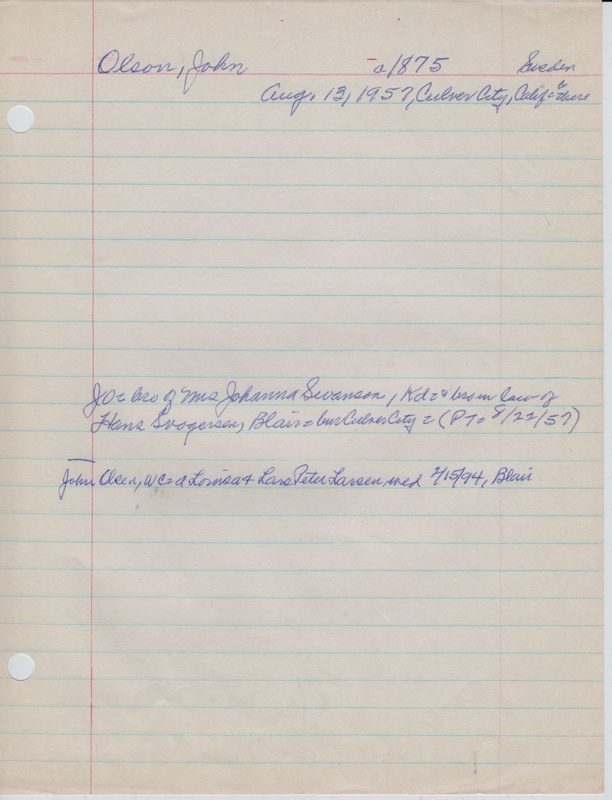 Olson, John a/875 Sweden
Aug. 13, 1957, Culver City, Calif = & there
JO = bro of Mrs Johanna Swanson, Kd = & bro in law of
Hans, Blair = bur Culver City = (PT = 8/22/57)
John Olsen, WC = d Lovisa & Lars Peter Larsen, med 2/15/94, Blair